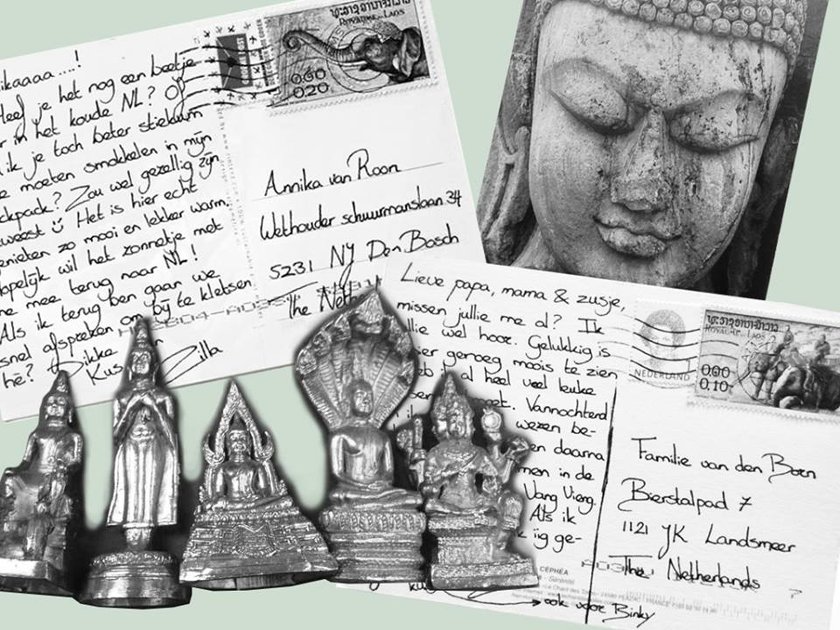 ikaaaa ....!
je het nog een beetje
in het koude NL? Of
ik je toch beter stiekum
moeten smokkelen in mijn
ckpack? Zou wel gezellig zijn
geweest Het is hier echt
genieten zo mooi en lekker warm.
hopelijk wil het zonnetje met
me mee terug naar NL!
Als ik terug ben gaan we
snel afspreken om bij te kletsen
hè? Dikke
Kus
Zilla
ROYAUME DU LAOS
0.00
0.20
Annika van Roon
Wethouder schuurmanslaan 34
5231 NJ Den Bosch
The Neth
Lieve papa, mama & zusje,
missen jullie me al? Ik
jullie wel hoor. Gelukkig is
hier genoeg moois te zien
heb ik al heel veel leuke
Vannochtend
wezen be-
en daarna
men in de
Vang Vieng.
Als ik
ik iig ge-
ook voor Binky
NEDERLAND
ROYAUME DU LAOS
0.00
0.10
Familie van den Born
Bierstalpad 7
1121 JK Landsmeer
The Netherlands
CEPHÉA